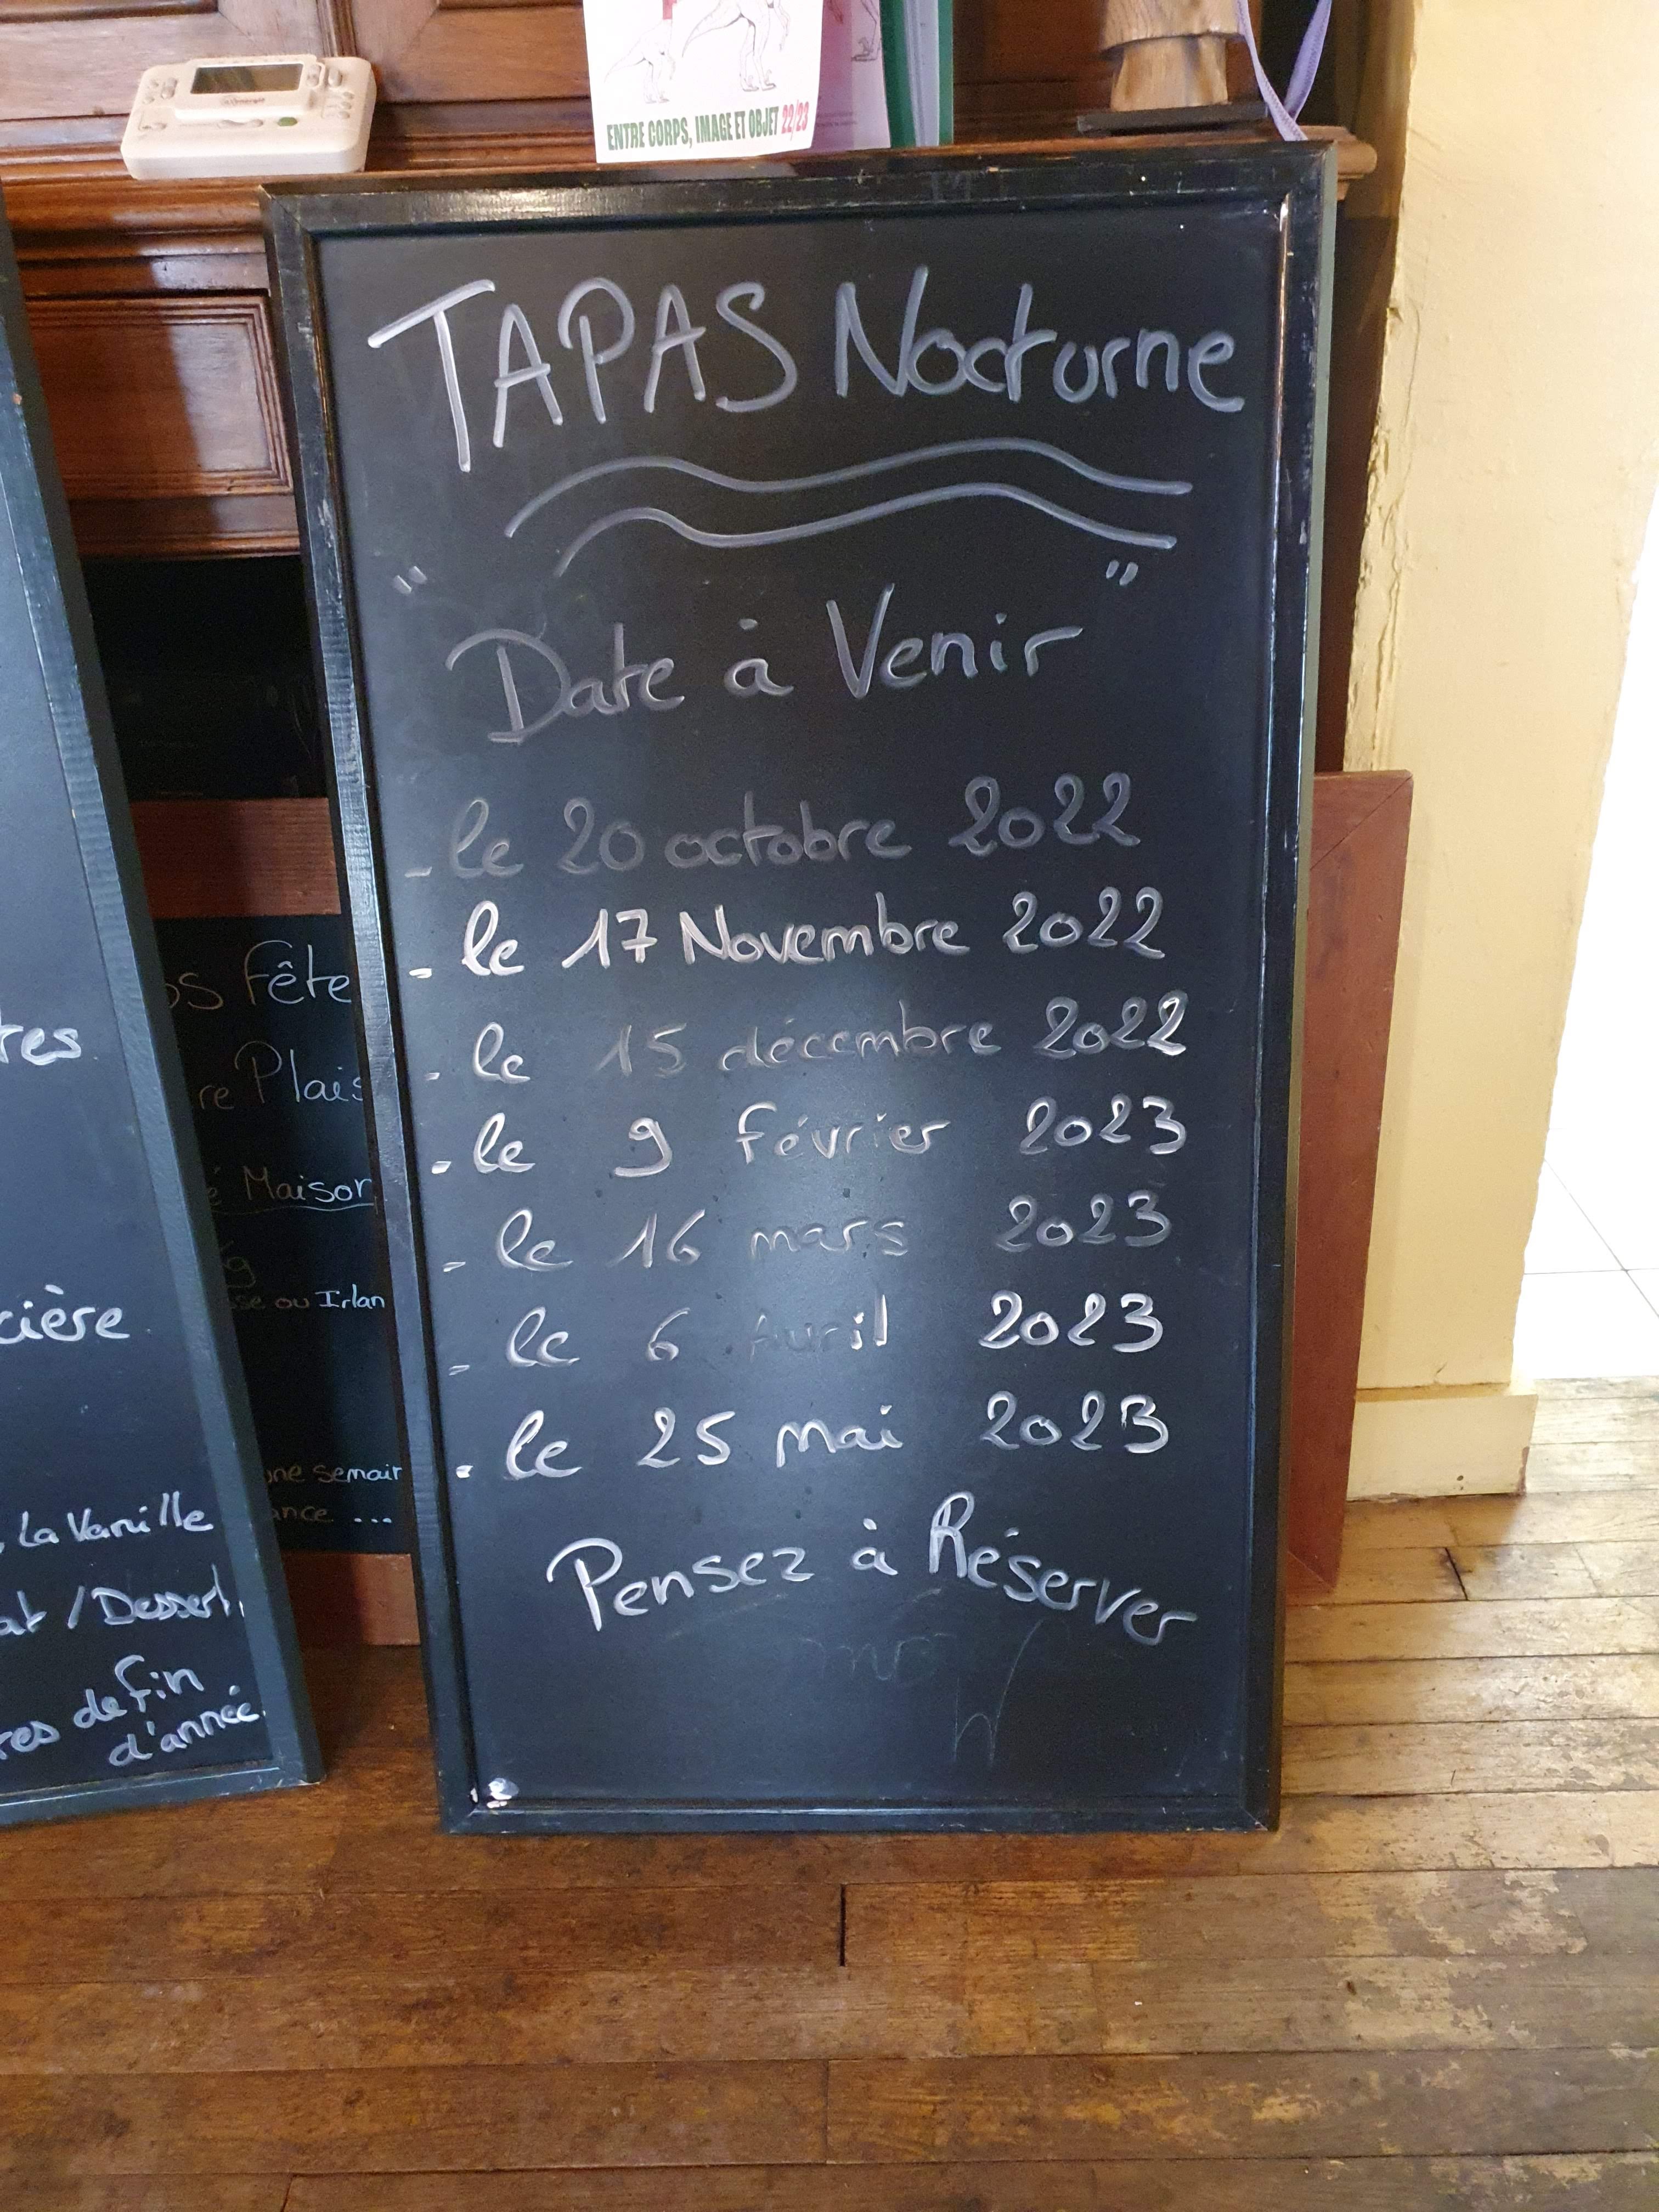 ENTRE CORPS, IMAGE ET OBJET 22/23
TAPAS Nocturne
" Date à Venir "
- le 20 octobre 2022
- le 17 Novembre 2022
- le 15 décembre 2022
- le 9 février 2023
- le 16 mars 2023
- le 6 Avril 2023
- le 25 mai 2023
Pensez à Réserver
os Fête
re Plais
é Maison
9
sse ou Irlan
une semain
ance ...
tres
cière
, La Vanille
at / Dessert,
res de fin
d'année.